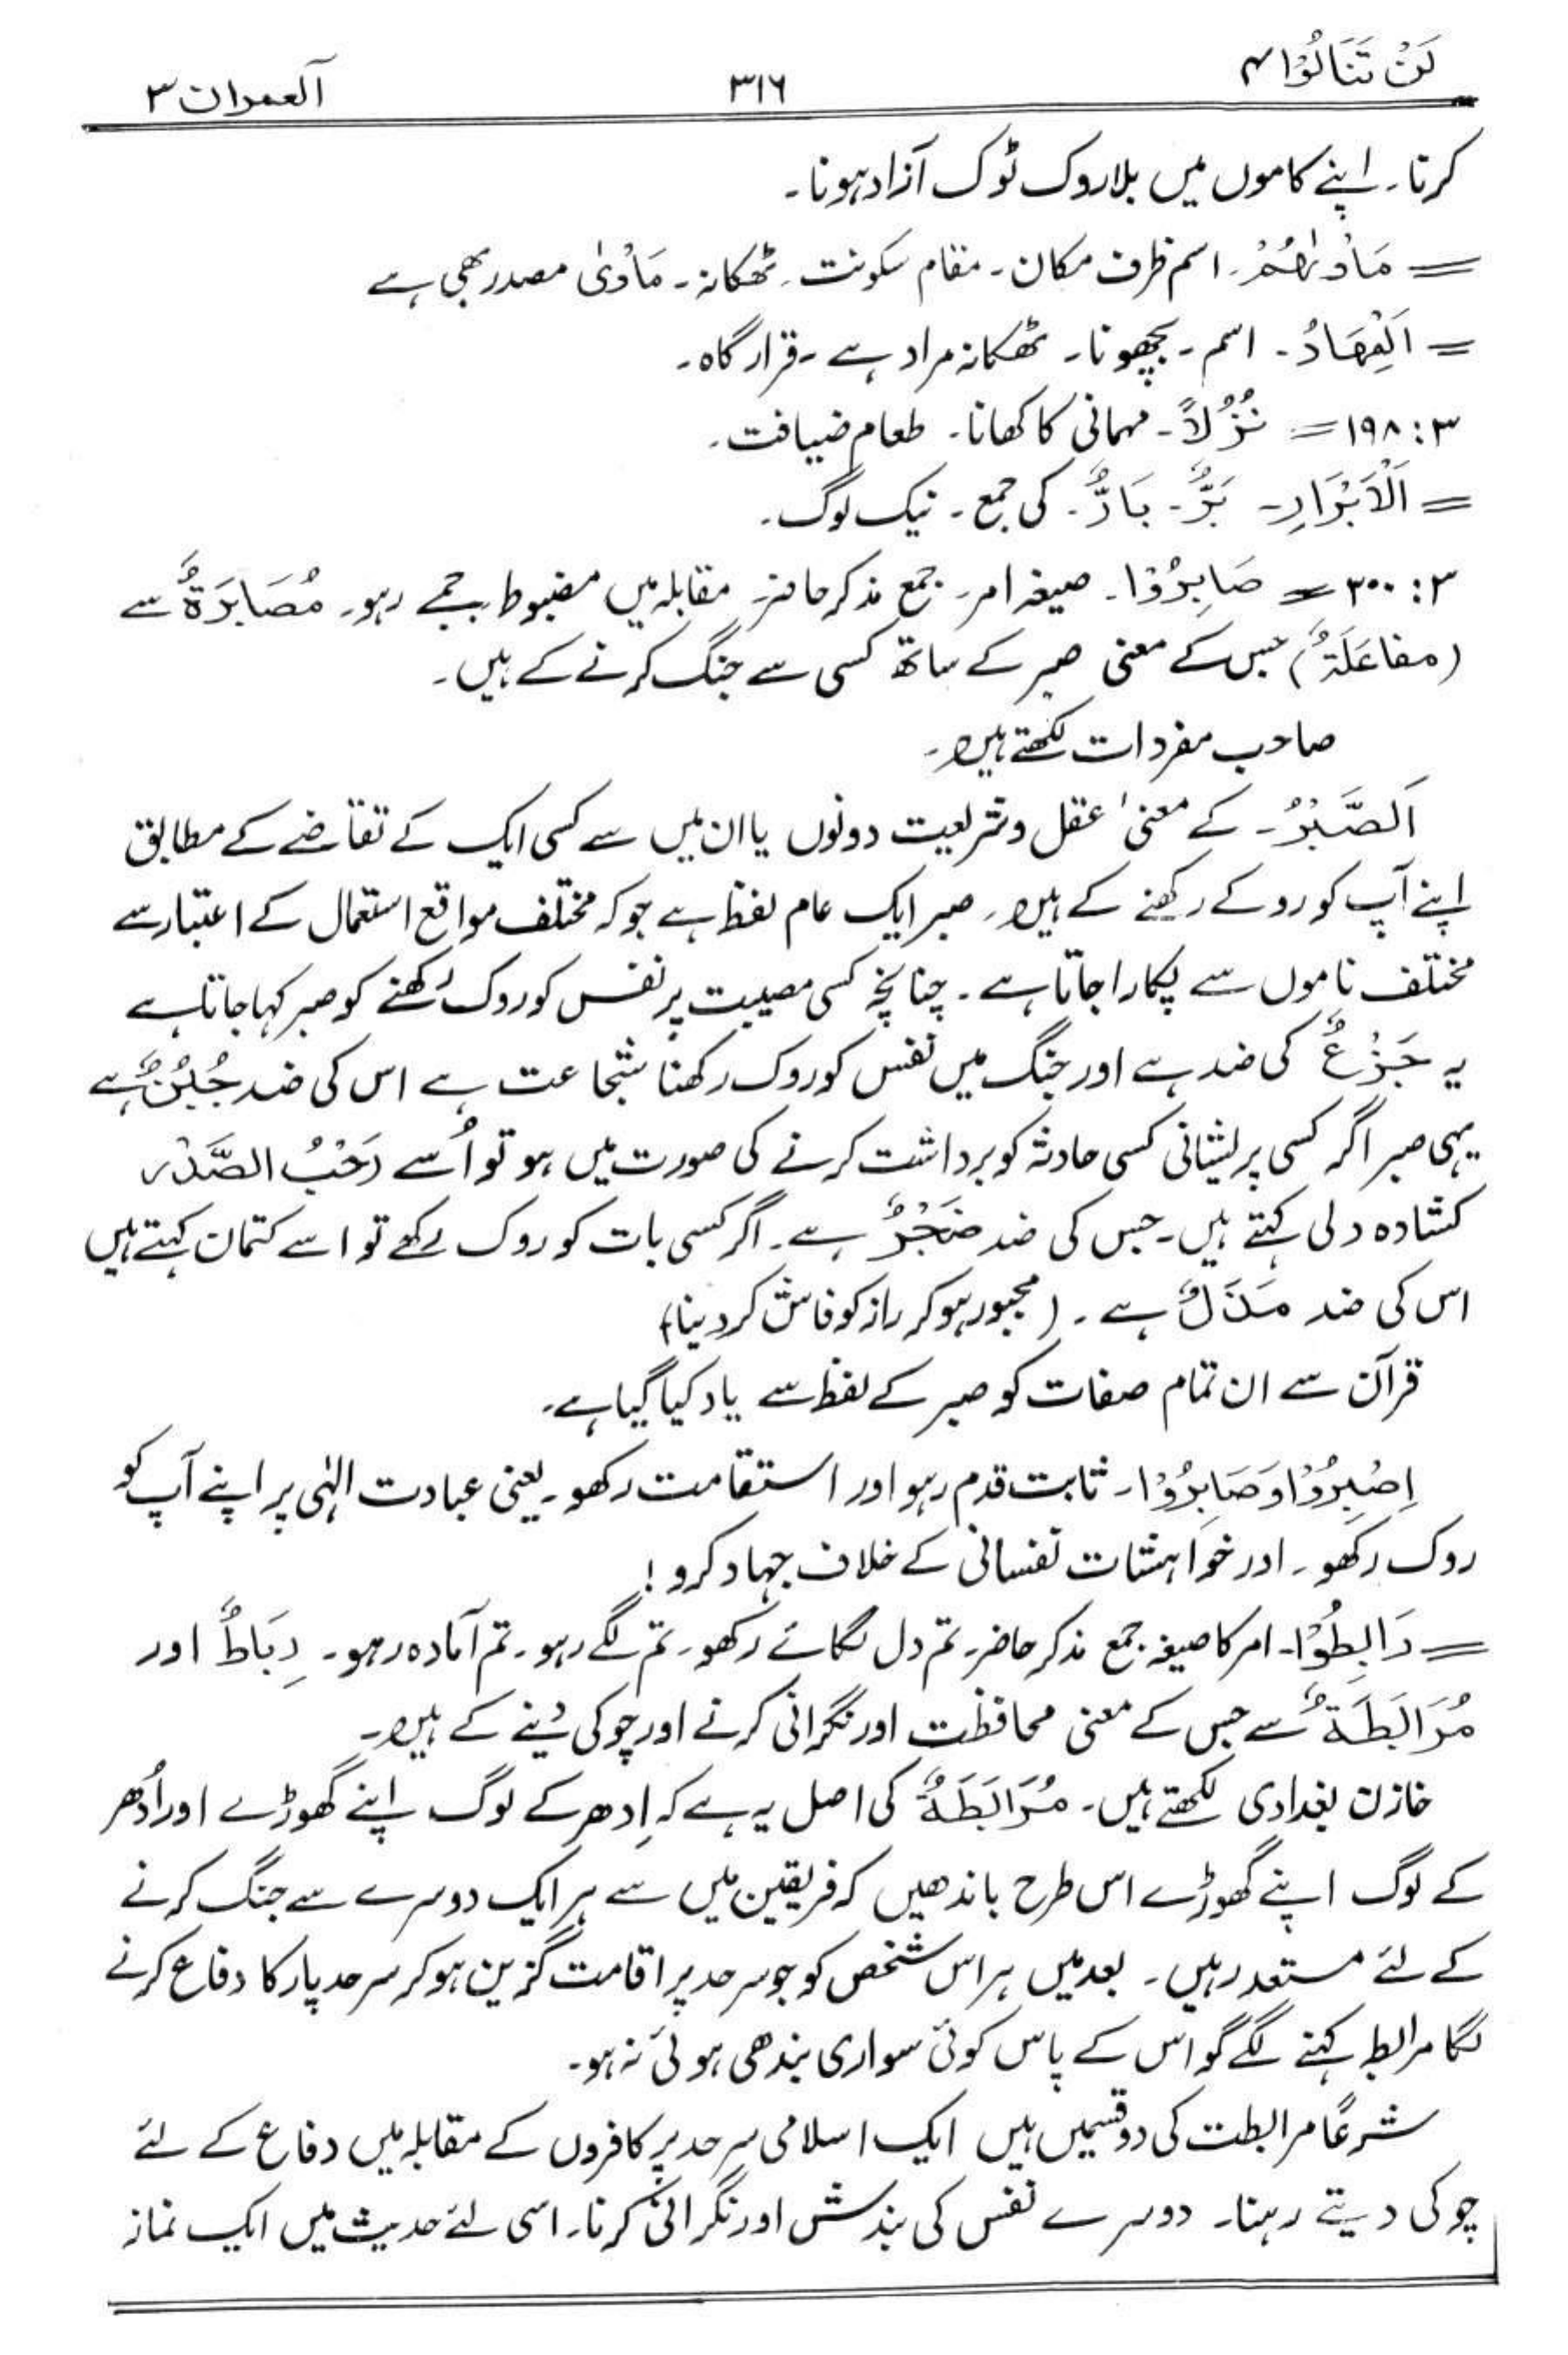 لَنْ تَنَالُوْا ۴
۳۱۶
آل عمران ۳
کرنا۔ اپنے کاموں میں بلا روک ٹوک آزاد ہونا۔
= مَأْوٰىهُمْ۔ اسم ظرف مکان۔ مقام سکونت۔ ٹھکانہ۔ مَأْوٰی مصدر بھی ہے
= اَلْمِهَادُ۔ اسم۔ بچھونا۔ ٹھکانہ مراد ہے۔ قرارگاہ۔
۳: ۱۹۸ = نُزُلاً۔ مہمانی کا کھانا۔ طعام ضیافت۔
= اَلْاَبْرَارِ۔ بَرٌّ۔ بَارٌّ۔ کی جمع۔ نیک لوگ۔
۳: ۳۰۰ = صَابِرُوْا۔ صیغہ امر۔ جمع مذکر حاضر۔ مقابلہ میں مضبوط جمے رہو۔ مُصَابَرَةٌ سے
(مفاعَلَةٌ) جس کے معنی صبر کے ساتھ کسی سے جنگ کرنے کے ہیں۔
صاحب مفردات لکھتے ہیں۔
اَلصَّبْرُ۔ کے معنی عقل و شریعت دونوں یا ان میں سے کسی ایک کے تقاضے کے مطابق
اپنے آپ کو روکے رکھنے کے ہیں۔ صبر ایک عام لفظ ہے جو کہ مختلف مواقع استعمال کے اعتبار سے
مختلف ناموں سے پکارا جاتا ہے۔ چنانچہ کسی مصیبت پر نفس کو روک رکھنے کو صبر کہا جاتا ہے
یہ جَزْعٌ کی ضد ہے اور جنگ میں نفس کو روک رکھنا شجاعت ہے اس کی ضد جُبُنٌ ہے
یہی صبر اگر کسی پریشانی کسی حادثہ کو برداشت کرنے کی صورت میں ہو تو اُسے رَحْبُ الصَّدْر
کشادہ دلی کہتے ہیں۔ جس کی ضد ضَجْرٌ ہے۔ اگر کسی بات کو روک رکھے تو اسے کتمان کہتے ہیں
اس کی ضد مَذَلٌ ہے۔ (مجبور ہو کر راز کو فاش کر دینا)
قرآن سے ان تمام صفات کو صبر کے لفظ سے یاد کیا گیا ہے۔
اِصْبِرُوْا وَصَابِرُوْا۔ ثابت قدم رہو اور استقامت رکھو۔ یعنی عبادت الہٰی پر اپنے آپ کو
روک رکھو۔ اور خواہشات نفسانی کے خلاف جہاد کرو!
= رَابِطُوْا۔ امر کا صیغہ جمع مذکر حاضر۔ تم دل لگائے رکھو۔ تم لگے رہو۔ تم آمادہ رہو۔ رِبَاطٌ اور
مُرَابَطَةٌ سے جس کے معنی محافظت اور نگرانی کرنے اور چوکی دینے کے ہیں۔
خازن بغدادی لکھتے ہیں۔ مُرَابَطَةٌ کی اصل یہ ہے کہ اِدھر کے لوگ اپنے گھوڑے اور اُدھر
کے لوگ اپنے گھوڑے اس طرح باندھیں کہ فریقین میں سے ہر ایک دوسرے سے جنگ کرنے
کے لئے مستعد رہیں۔ بعد میں ہر اس شخص کو جو سرحد پر اقامت گزین ہو کر سرحد پار کا دفاع کرنے
لگا مرابط کہنے لگے گو اس کے پاس کوئی سواری بندھی ہوئی نہ ہو۔
شرعًا مرابطت کی دو قسمیں ہیں ایک اسلامی سرحد پر کافروں کے مقابلہ میں دفاع کے لئے
چوکی دیتے رہنا۔ دوسرے نفس کی بندش اور نگرانی کرنا۔ اسی لئے حدیث میں ایک نماز